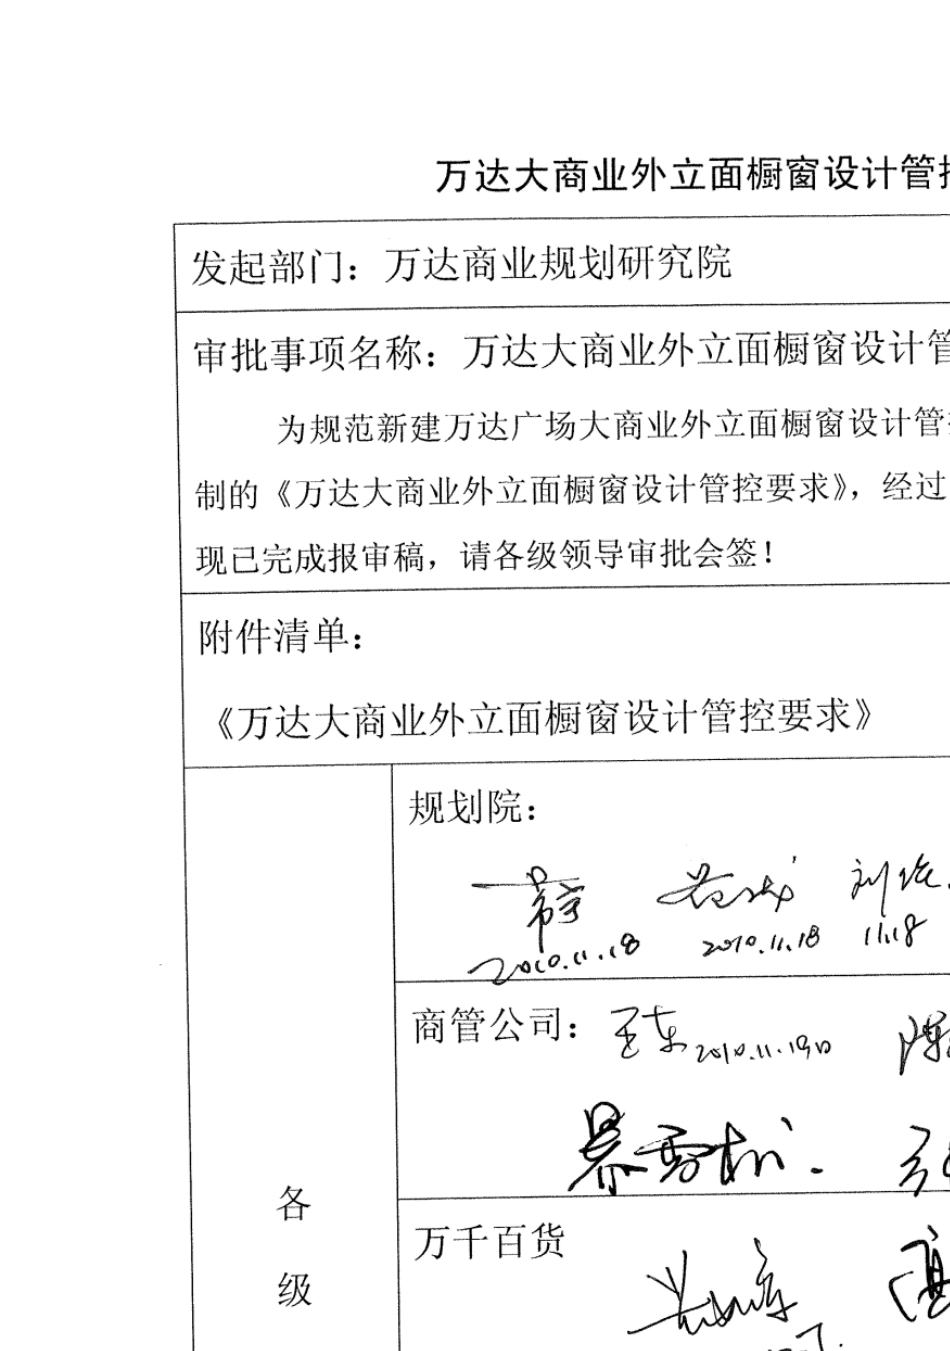 万达大商业外立面橱窗设计管控
发起部门：万达商业规划研究院
审批事项名称：万达大商业外立面橱窗设计管
为规范新建万达广场大商业外立面橱窗设计管
制的《万达大商业外立面橱窗设计管控要求》，经过
现已完成报审稿，请各级领导审批会签！
附件清单：
《万达大商业外立面橱窗设计管控要求》
规划院：
2010.11.18 2010.11.18 11.18
商管公司：王东 2010.11.19日 陈
万千百货
各
级